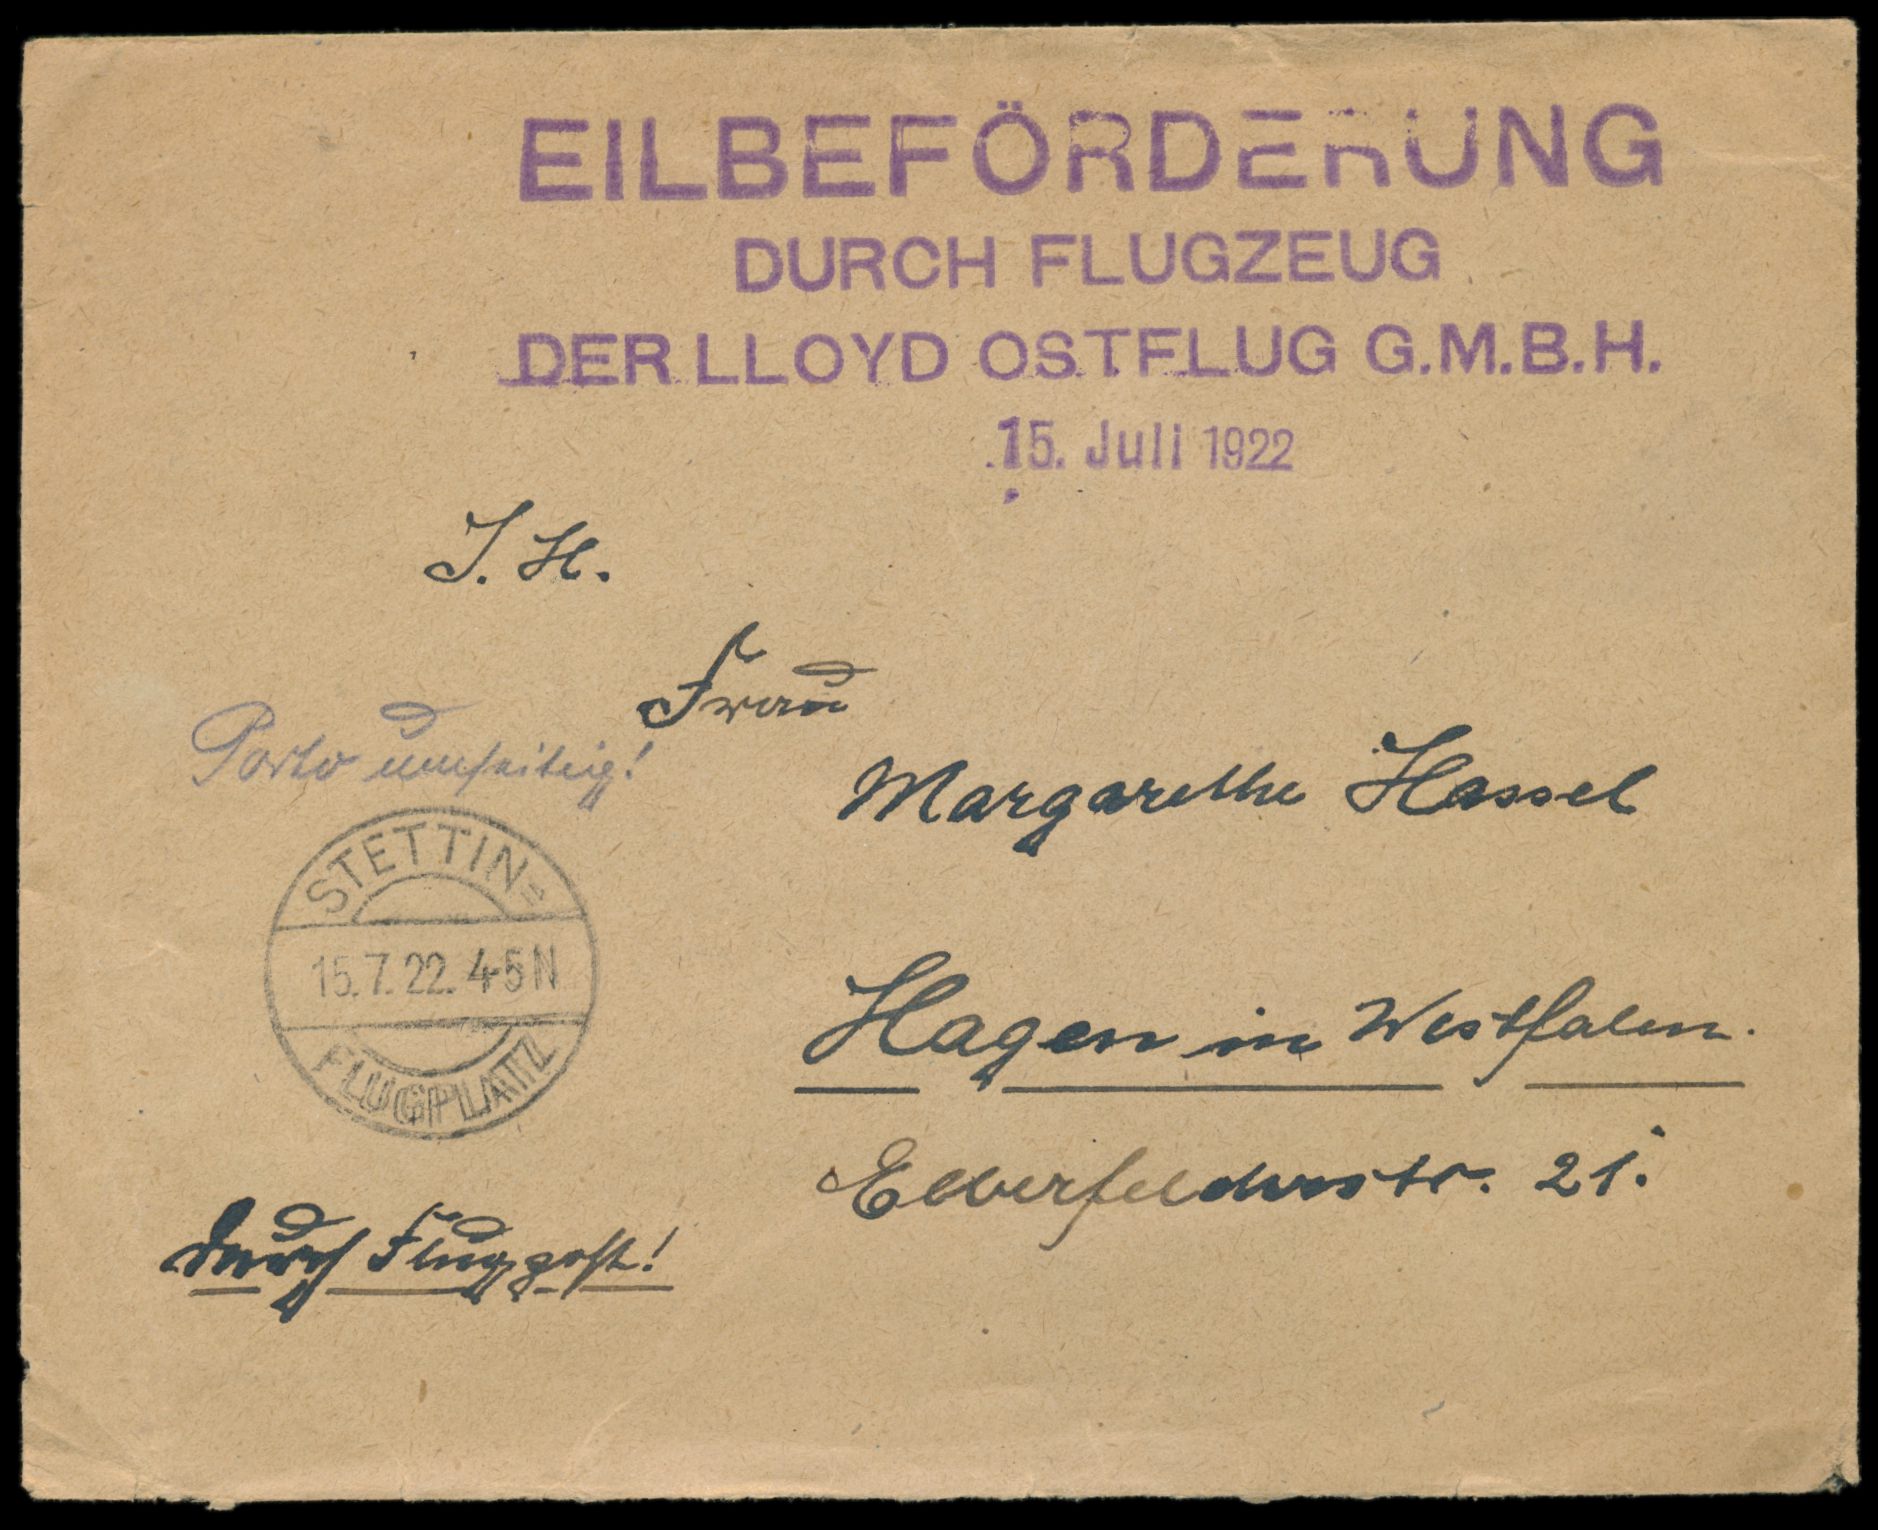 EILBEFÖRDERUNG
DURCH FLUGZEUG
DER LLOYD OSTFLUG G.M.B.H.
15. Juli 1922
J. H.
Frau
Porto umseitig!
Margarethe Hassel
STETTIN=
15.7.22. 4-5 N
FLUGPLATZ
Hagen in Westfalen.
Elberfelderstr. 21.
Durch Flugpost!